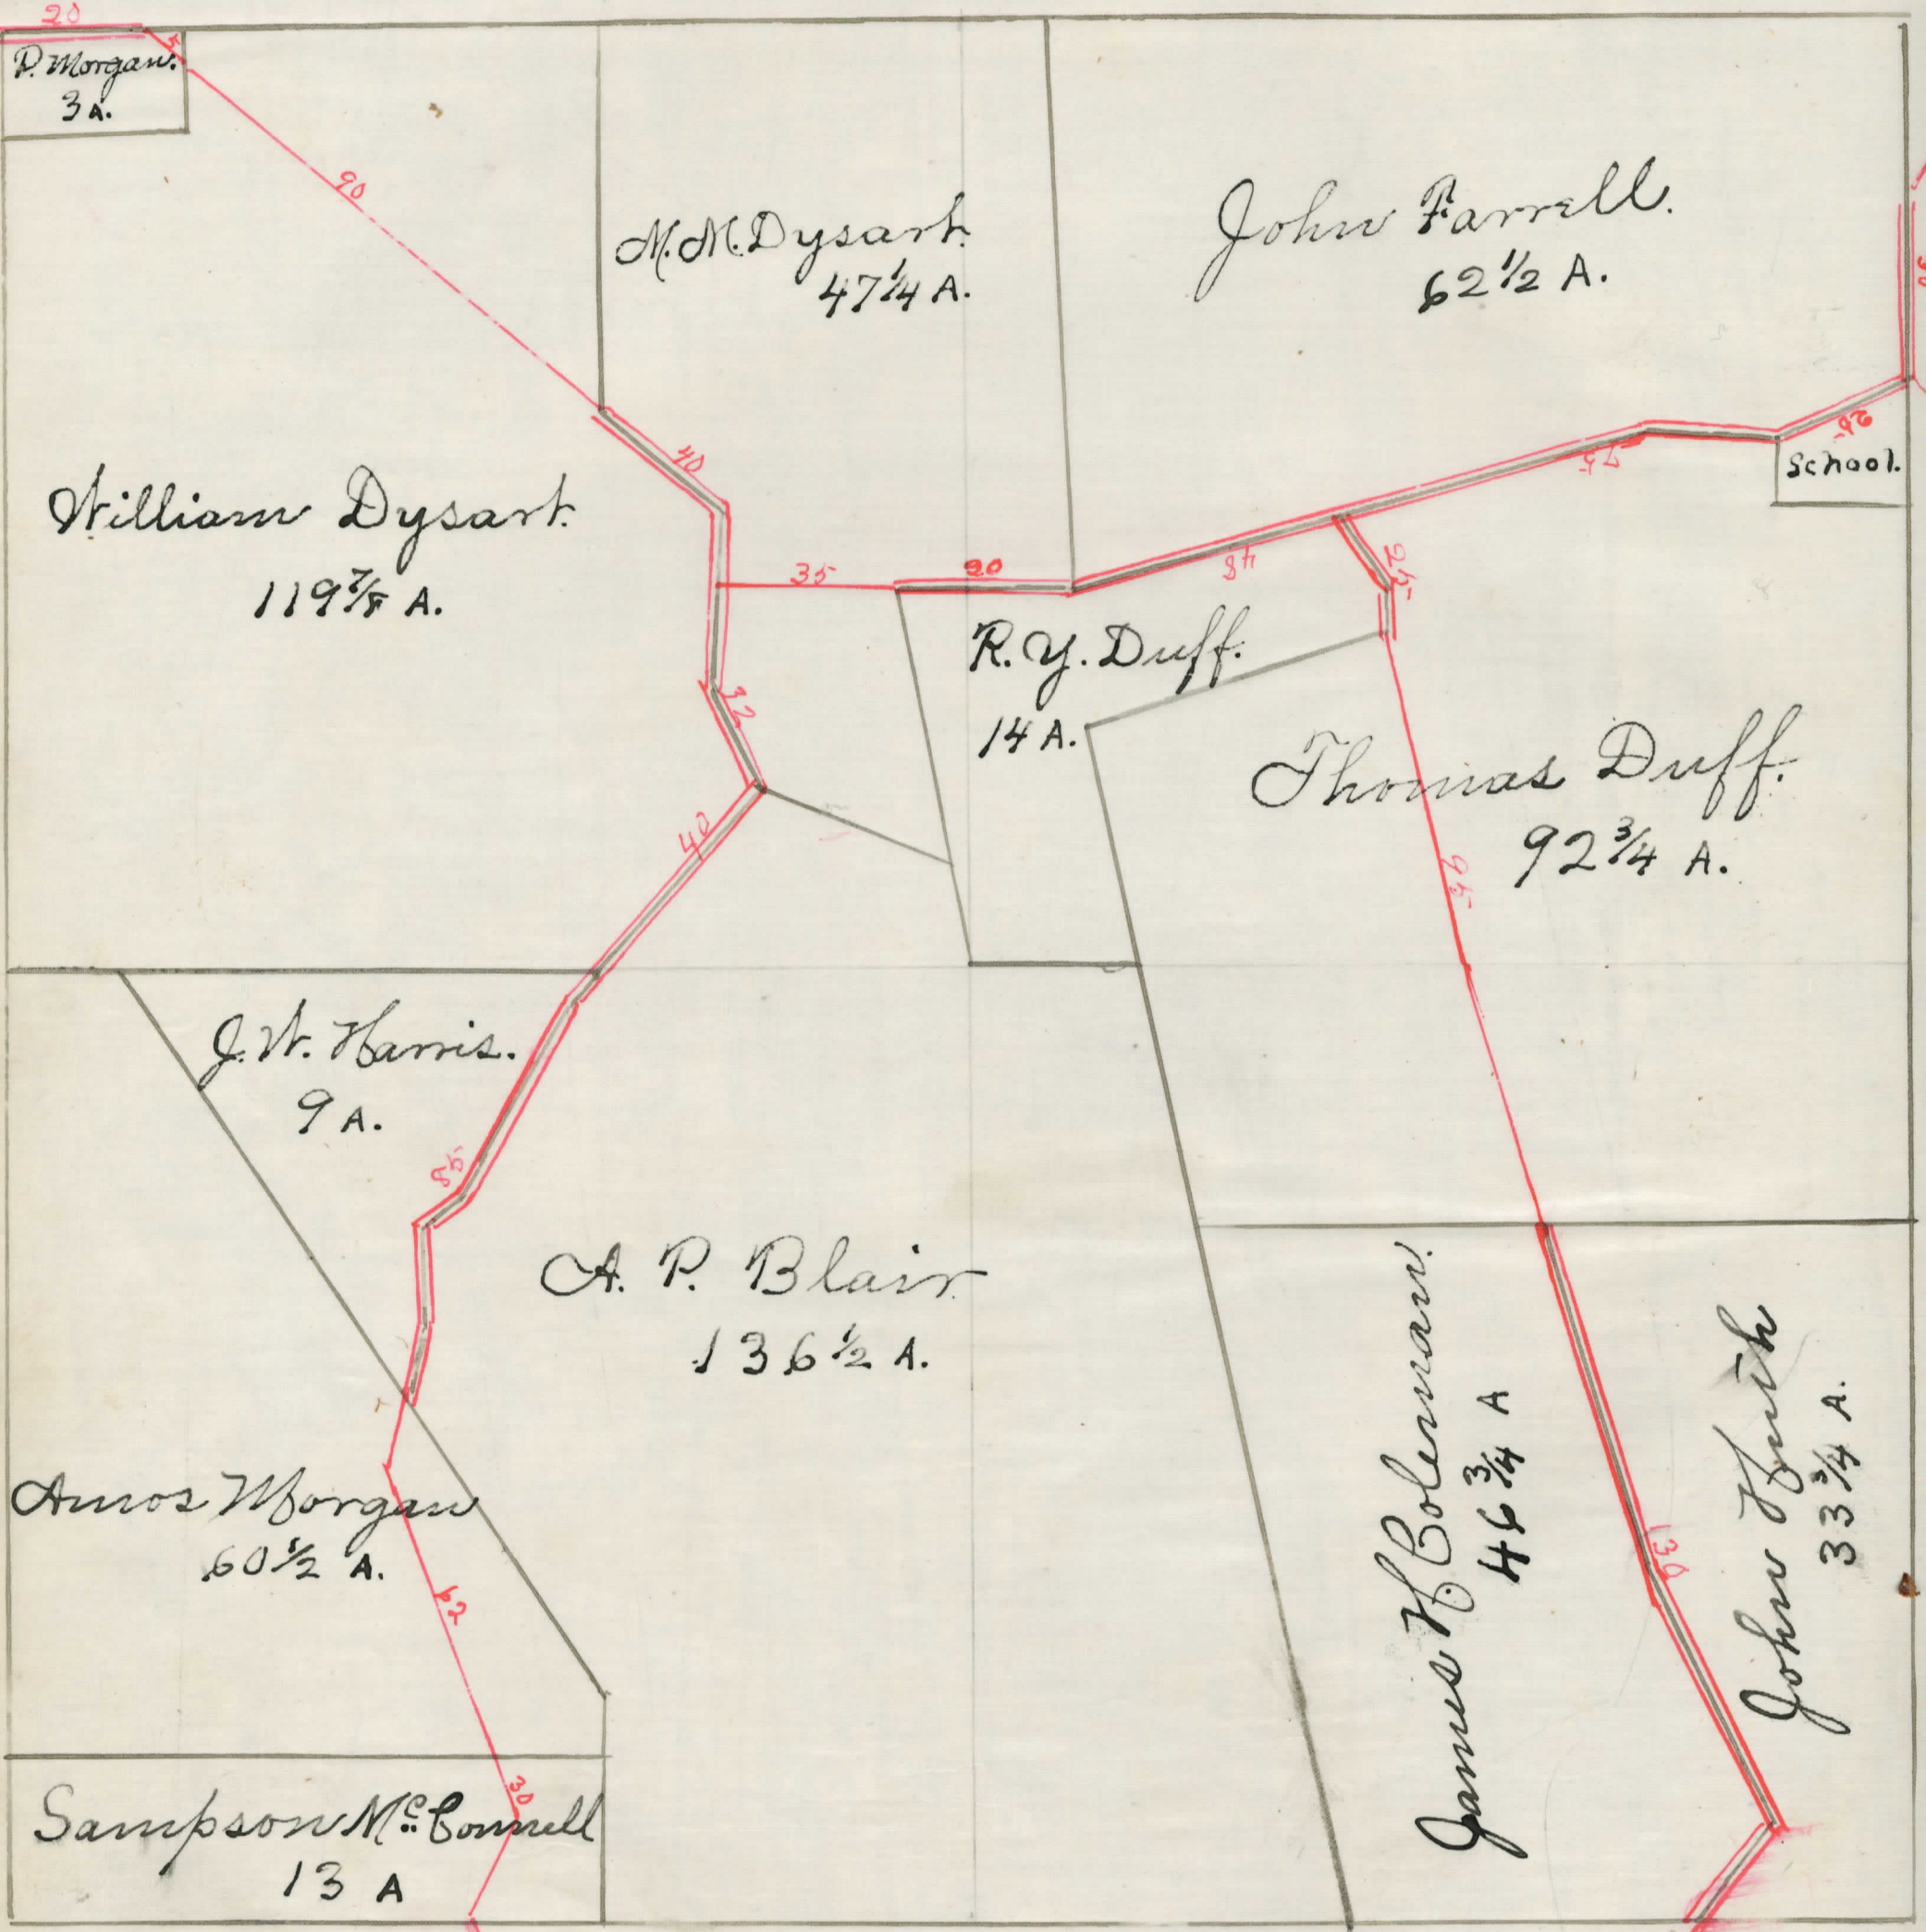 20
5
P. Morgan.
3 A.
90
M. M. Dysart.
47 1/4 A.
John Farrell.
62 1/2 A.
40
William Dysart.
119 7/8 A.
35
20
48
75
25
School.
25
32
R. Y. Duff.
14 A.
Thomas Duff.
92 3/4 A.
95
40
J. W. Harris.
9 A.
85
A. P. Blair.
136 1/2 A.
Amos Morgan
60 1/2 A.
62
James H. Coleman.
46 3/4 A
130
John
33 3/4 A.
30
Sampson McConnell
13 A